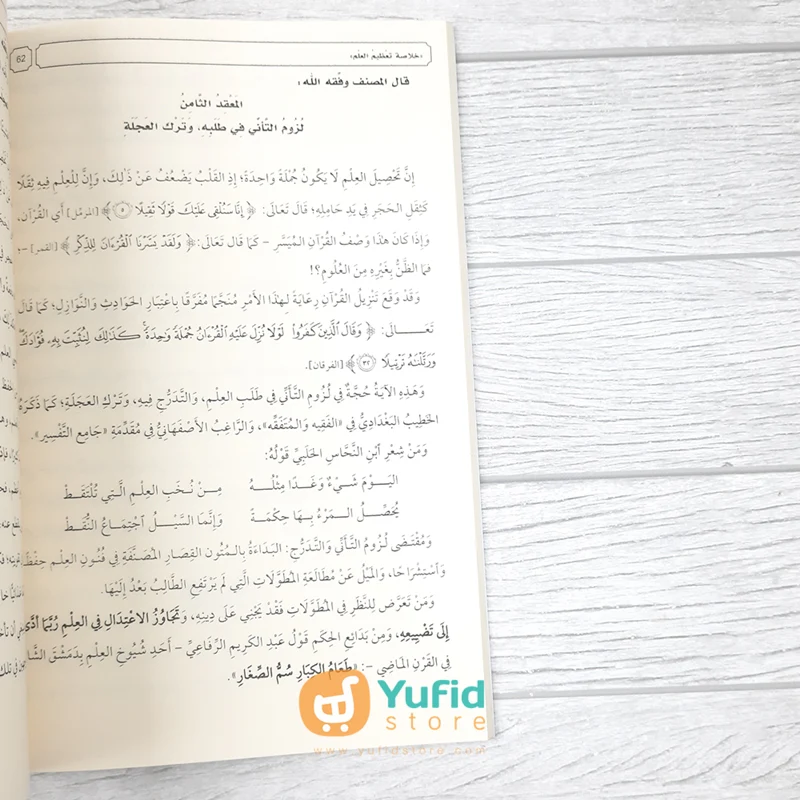 62
«خلاصة تعظيم العلم»
قال المصنف وفّقه الله:
المَعْقِدُ الثَّامِنُ
لُزُومُ التَّأَنِّي فِي طَلَبِهِ، وَتَرْكِ العَجَلَةِ
إِنَّ تَحْصِيلَ العِلْمِ لَا يَكُونُ جُمْلَةً وَاحِدَةً؛ إِذِ القَلْبُ يَضْعُفُ عَنْ ذَٰلِكَ، وَإِنَّ لِلْعِلْمِ فِيهِ ثِقَلًا
كَثِقَلِ الحَجَرِ فِي يَدِ حَامِلِهِ؛ قَالَ تَعَالَى: ﴿إِنَّا سَنُلْقِي عَلَيْكَ قَوْلًا ثَقِيلًا ٥﴾ [المزمل] أَيِ القُرْآنَ،
وَإِذَا كَانَ هَٰذَا وَصْفُ القُرْآنِ المُيَسَّرِ – كَمَا قَالَ تَعَالَى: ﴿وَلَقَدْ يَسَّرْنَا الْقُرْءَانَ لِلذِّكْرِ﴾ [القمر] –؛
فَمَا الظَّنُّ بِغَيْرِهِ مِنَ العُلُومِ؟!
وَقَدْ وَقَعَ تَنْزِيلُ القُرْآنِ رِعَايَةً لِهَٰذَا الأَمْرِ مُنَجَّمًا مُفَرَّقًا بِاعْتِبَارِ الحَوَادِثِ وَالنَّوَازِلِ؛ كَمَا قَالَ
تَعَالَى: ﴿وَقَالَ الَّذِينَ كَفَرُوا لَوْلَا نُزِّلَ عَلَيْهِ الْقُرْءَانُ جُمْلَةً وَٰحِدَةً كَذَٰلِكَ لِنُثَبِّتَ بِهِ فُؤَادَكَ
وَرَتَّلْنَٰهُ تَرْتِيلًا ٣٢﴾ [الفرقان].
وَهَذِهِ الآيَةُ حُجَّةٌ فِي لُزُومِ التَّأَنِّي فِي طَلَبِ العِلْمِ، وَالتَّدَرُّجِ فِيهِ، وَتَرْكِ العَجَلَةِ؛ كَمَا ذَكَرَهُ
الخَطِيبُ البَغْدَادِيُّ فِي «الفَقِيهِ وَالمُتَفَقِّهِ»، وَالرَّاغِبُ الأَصْفَهَانِيُّ فِي مُقَدِّمَةِ «جَامِعِ التَّفْسِيرِ».
وَمِنْ شِعْرِ ٱبْنِ النَّحَّاسِ الحَلَبِيِّ قَوْلُهُ:
اليَوْمَ شَيْءٌ وَغَدًا مِثْلُهُ مِنْ نُخَبِ العِلْمِ الَّتِي تُلْتَقَطْ
يُحَصِّلُ المَرْءُ بِهَا حِكْمَةً وَإِنَّمَا السَّيْلُ ٱجْتِمَاعُ النُّقَطْ
وَمُقْتَضَى لُزُومِ التَّأَنِّي وَالتَّدَرُّجِ: البَدَاءَةُ بِالمُتُونِ القِصَارِ المُصَنَّفَةِ فِي فُنُونِ العِلْمِ حِفْظًا
وَٱسْتِشْرَاحًا، وَالمَيْلُ عَنْ مُطَالَعَةِ المُطَوَّلَاتِ الَّتِي لَمْ يَرْتَفِعِ الطَّالِبُ بَعْدُ إِلَيْهَا.
وَمَنْ تَعَرَّضَ لِلنَّظَرِ فِي المُطَوَّلَاتِ فَقَدْ يَجْنِي عَلَى دِينِهِ، وَتَجَاوُزُ الاعْتِدَالِ فِي العِلْمِ رُبَّمَا أَدَّى
إِلَى تَضْيِيعِهِ، وَمِنْ بَدَائِعِ الحِكَمِ قَوْلُ عَبْدِ الكَرِيمِ الرِّفَاعِيِّ – أَحَدِ شُيُوخِ العِلْمِ بِدِمَشْقَ الشَّامِ
فِي القَرْنِ المَاضِي –: «طَعَامُ الكِبَارِ سُمُّ الصِّغَارِ».
Yufid
store
www.yufidstore.com